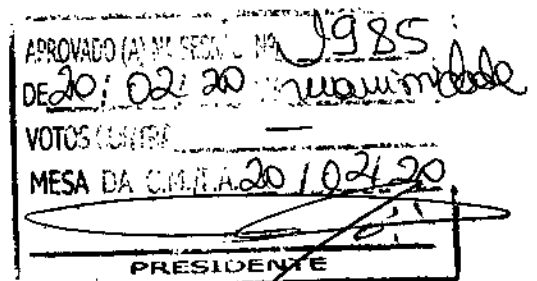 APROVADO (A) NA SESSÃO Nº 1985
DE 20/02/20 unanimidade
VOTOS CONTRA —
MESA DA C.M./F.A. 20/02/20
PRESIDENTE